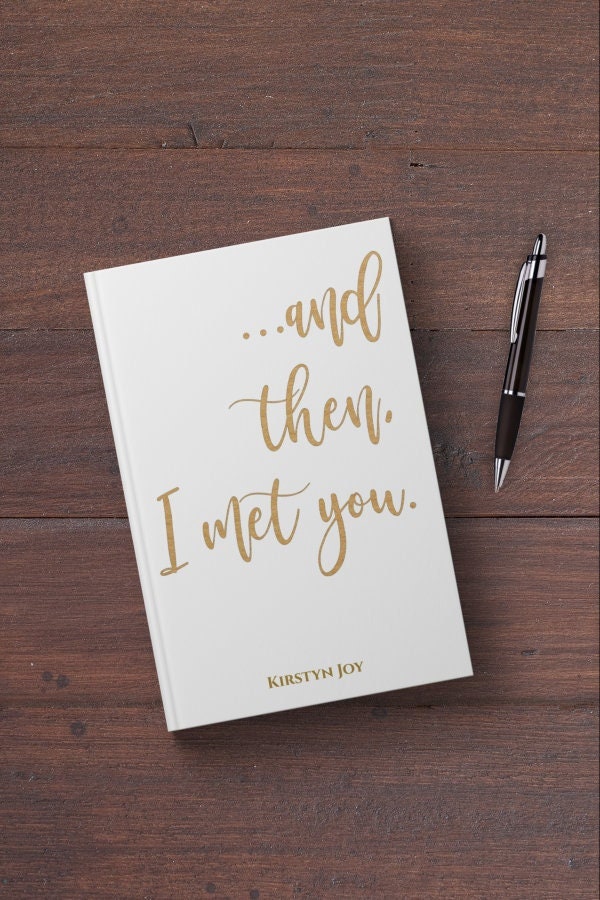 ...and
then.
I met you.
Kirstyn Joy